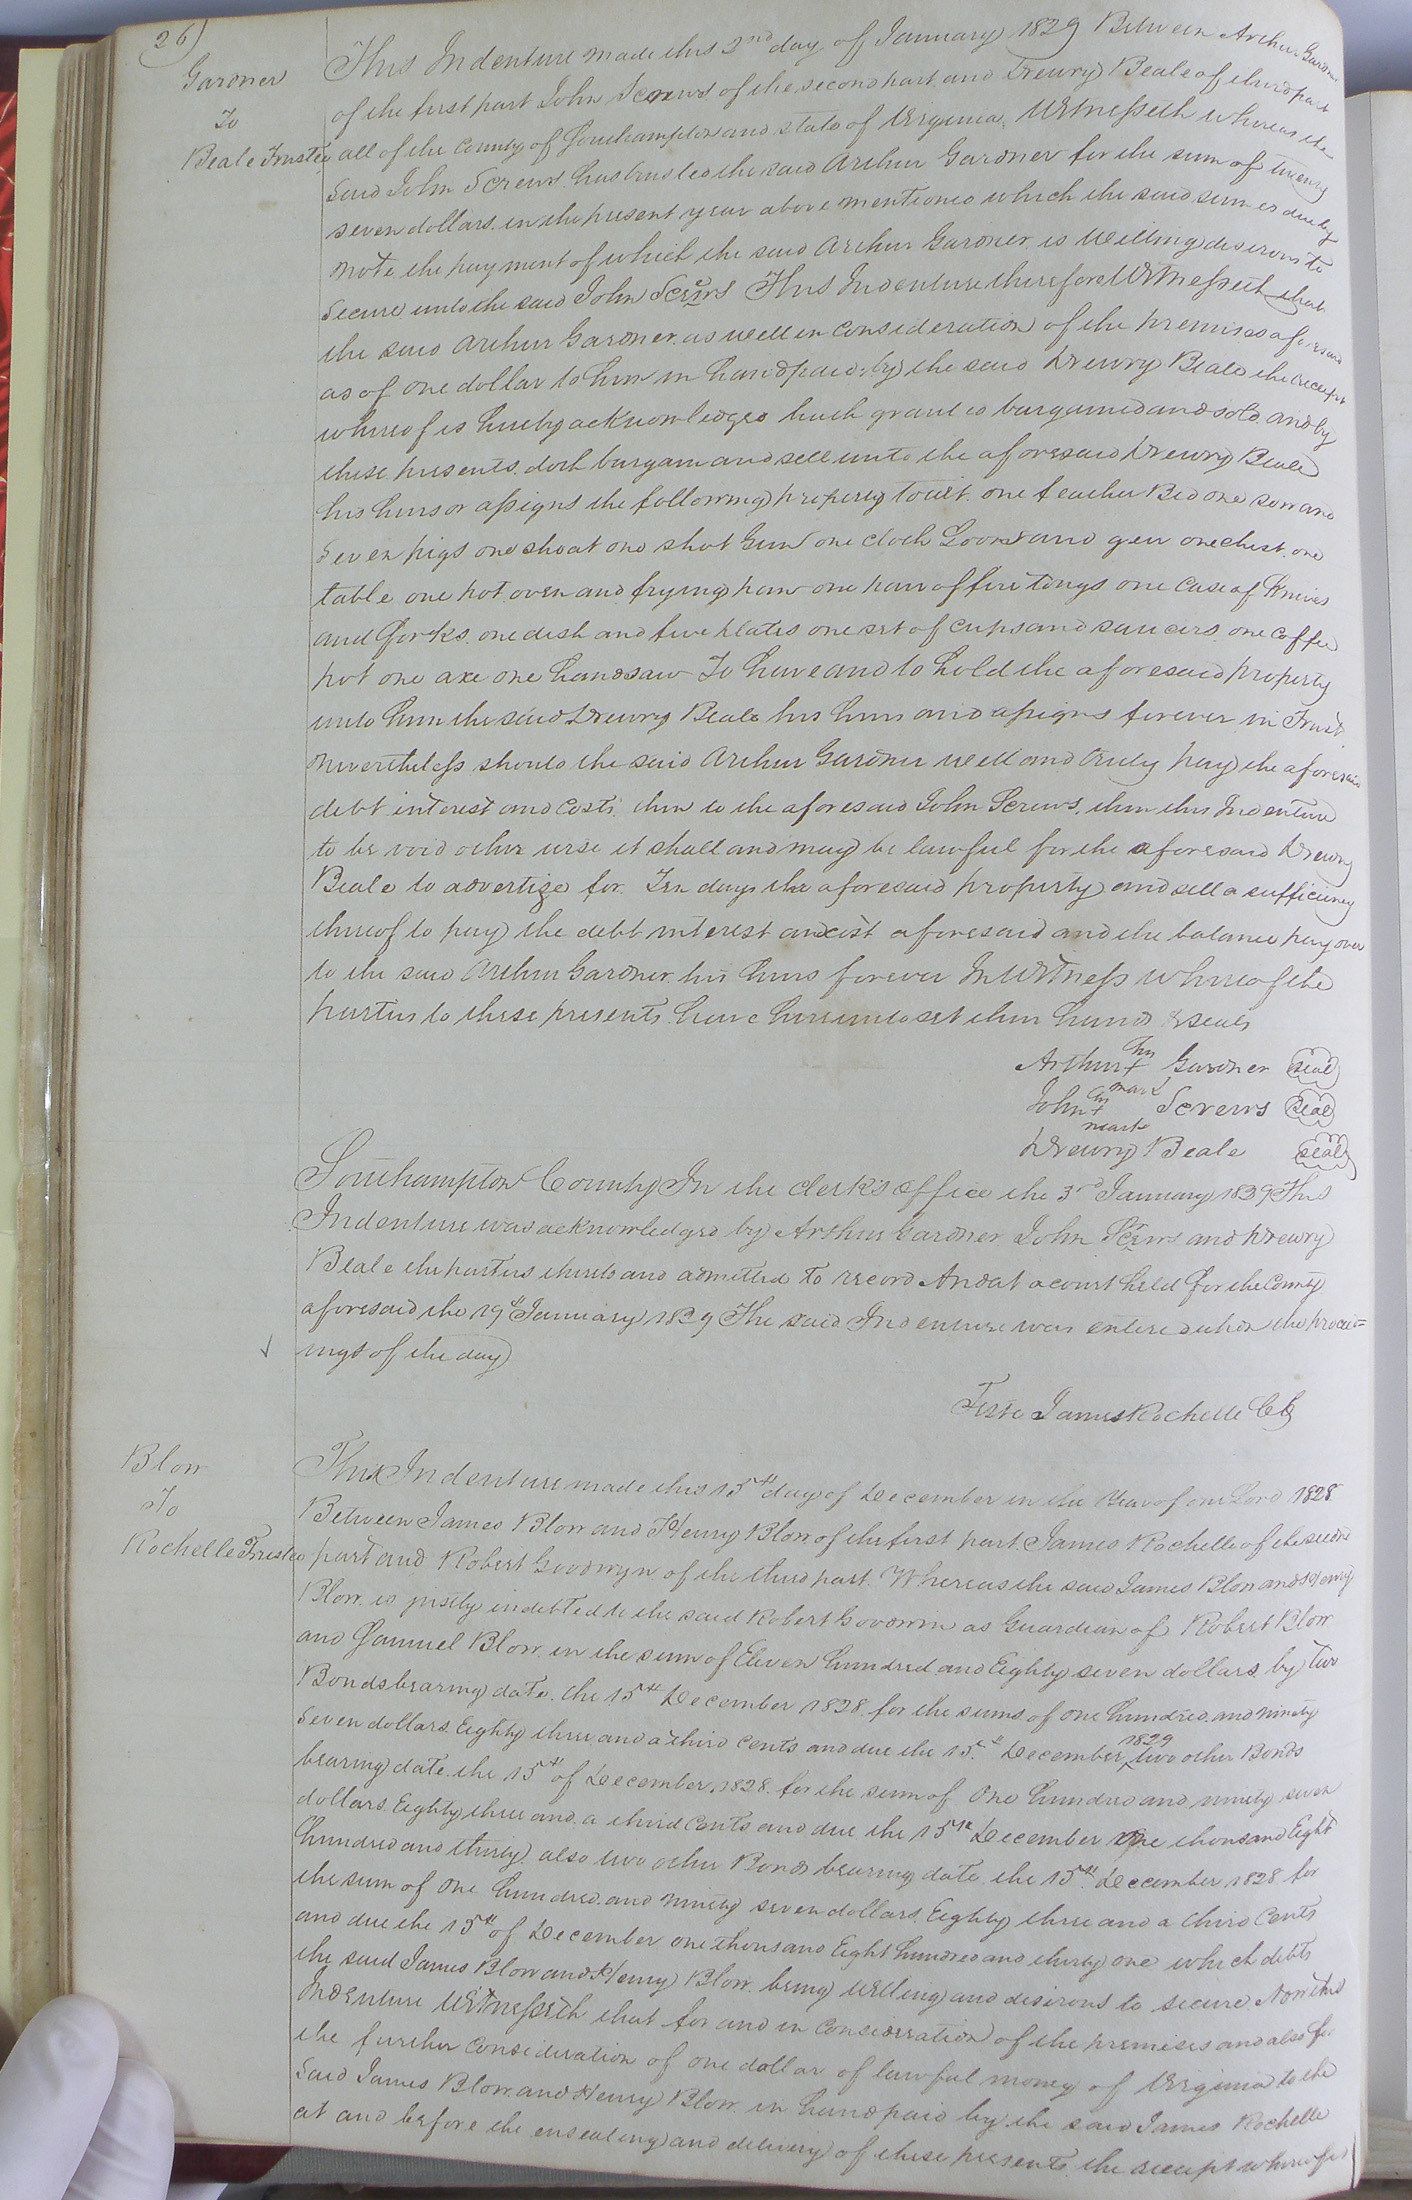 26)
Gardner
To
Beale Trustee
This Indenture made this 2nd day of January 1829 Between Arthur Gardner
of the first part John Screws of the second part and Drewry Beale of third part
all of the County of Southampton and state of Virginia. Witnesseth whereas the
said John Screws has trusted the said Arthur Gardner for the sum of twenty
seven dollars in the present year above mentioned which the said sum is due by
note the payment of which the said Arthur Gardner is Willing desirous to
Secure unto the said John Screws This Indenture therefore Witnesseth that
the said Arthur Gardner as well in Consideration of the premises aforesaid
as of one dollar to him in hand paid by the said Drewry Beale the receipt
whereof is hereby acknowledged hath granted bargained and sold and by
these presents doth bargain and sell unto the aforesaid Drewry Beale
his heirs or assigns the following property towit. one feather Bed one sow and
Seven pigs one shoat one shot Gun one cloth Loom and gear one chest one
table one pot oven and frying pan one pair of fire tongs one Case of Knives
and forks one dish and five plates one set of cups and saucers one coffee
pot one axe one handsaw To have and to hold the aforesaid property
unto him the said Drewry Beale his heirs and assigns forever in Trust
nevertheless should the said Arthur Gardner well and truly pay the aforesaid
debt interest and Costs then to the aforesaid John Screws, then this Indenture
to be void other wise it shall and may be lawful for the aforesaid Drewry
Beale to advertize for Ten days the aforesaid property and sell a sufficiency
thereof to pay the debt interest and cost aforesaid and the balance pay over
to the said Arthur Gardner his heirs forever In Witness whereof the
parties to these presents have hereunto set their hands & seals
his
Arthur + Gardner seal
mark
his
John + Screws Seal
mark
Drewry Beale seal
Southampton County In the Clerk's office the 3rd January 1829 This
Indenture was acknowledged by Arthur Gardner John Screws and Drewry
Beale the parties thereto and admitted to record And at a court held for the County
aforesaid the 19th January 1829 The said Indenture was entered upon the proceed=
ings of the day
Teste James Rochelle CC
Blow
To
Rochelle Trustee
This Indenture made this 15th day of December in the Year of our Lord 1828
Between James Blow and Henry Blow of the first part James Rochelle of the second
part and Robert Goodwyn of the third part. Whereas the said James Blow and Henry
Blow is justly indebted to the said Robert Goodwin as Guardian of Robert Blow
and Samuel Blow in the sum of Eleven hundred and Eighty seven dollars by two
Bonds bearing date the 15th December 1828 for the sums of one hundred and ninety
Seven dollars Eighty three and a third Cents and due the 15th December 1829 two other Bonds
bearing date the 15th of December 1828 for the sum of One hundred and ninety seven
dollars Eighty three and a third Cents and due the 15th December One thousand Eight
hundred and thirty also two other Bonds bearing date the 15th December 1828 for
the sum of One hundred and ninety seven dollars Eighty three and a third Cents
and due the 15th of December one thousand Eight hundred and thirty one which debts
the said James Blow and Henry Blow being willing and desirous to secure Now this
Indenture Witnesseth that for and in Consideration of the premises and also for
the further Consideration of one dollar of lawful money of Virginia to the
said James Blow and Henry Blow in hand paid by the said James Rochelle
at and before the ensealing and delivery of these presents the receipt whereof is